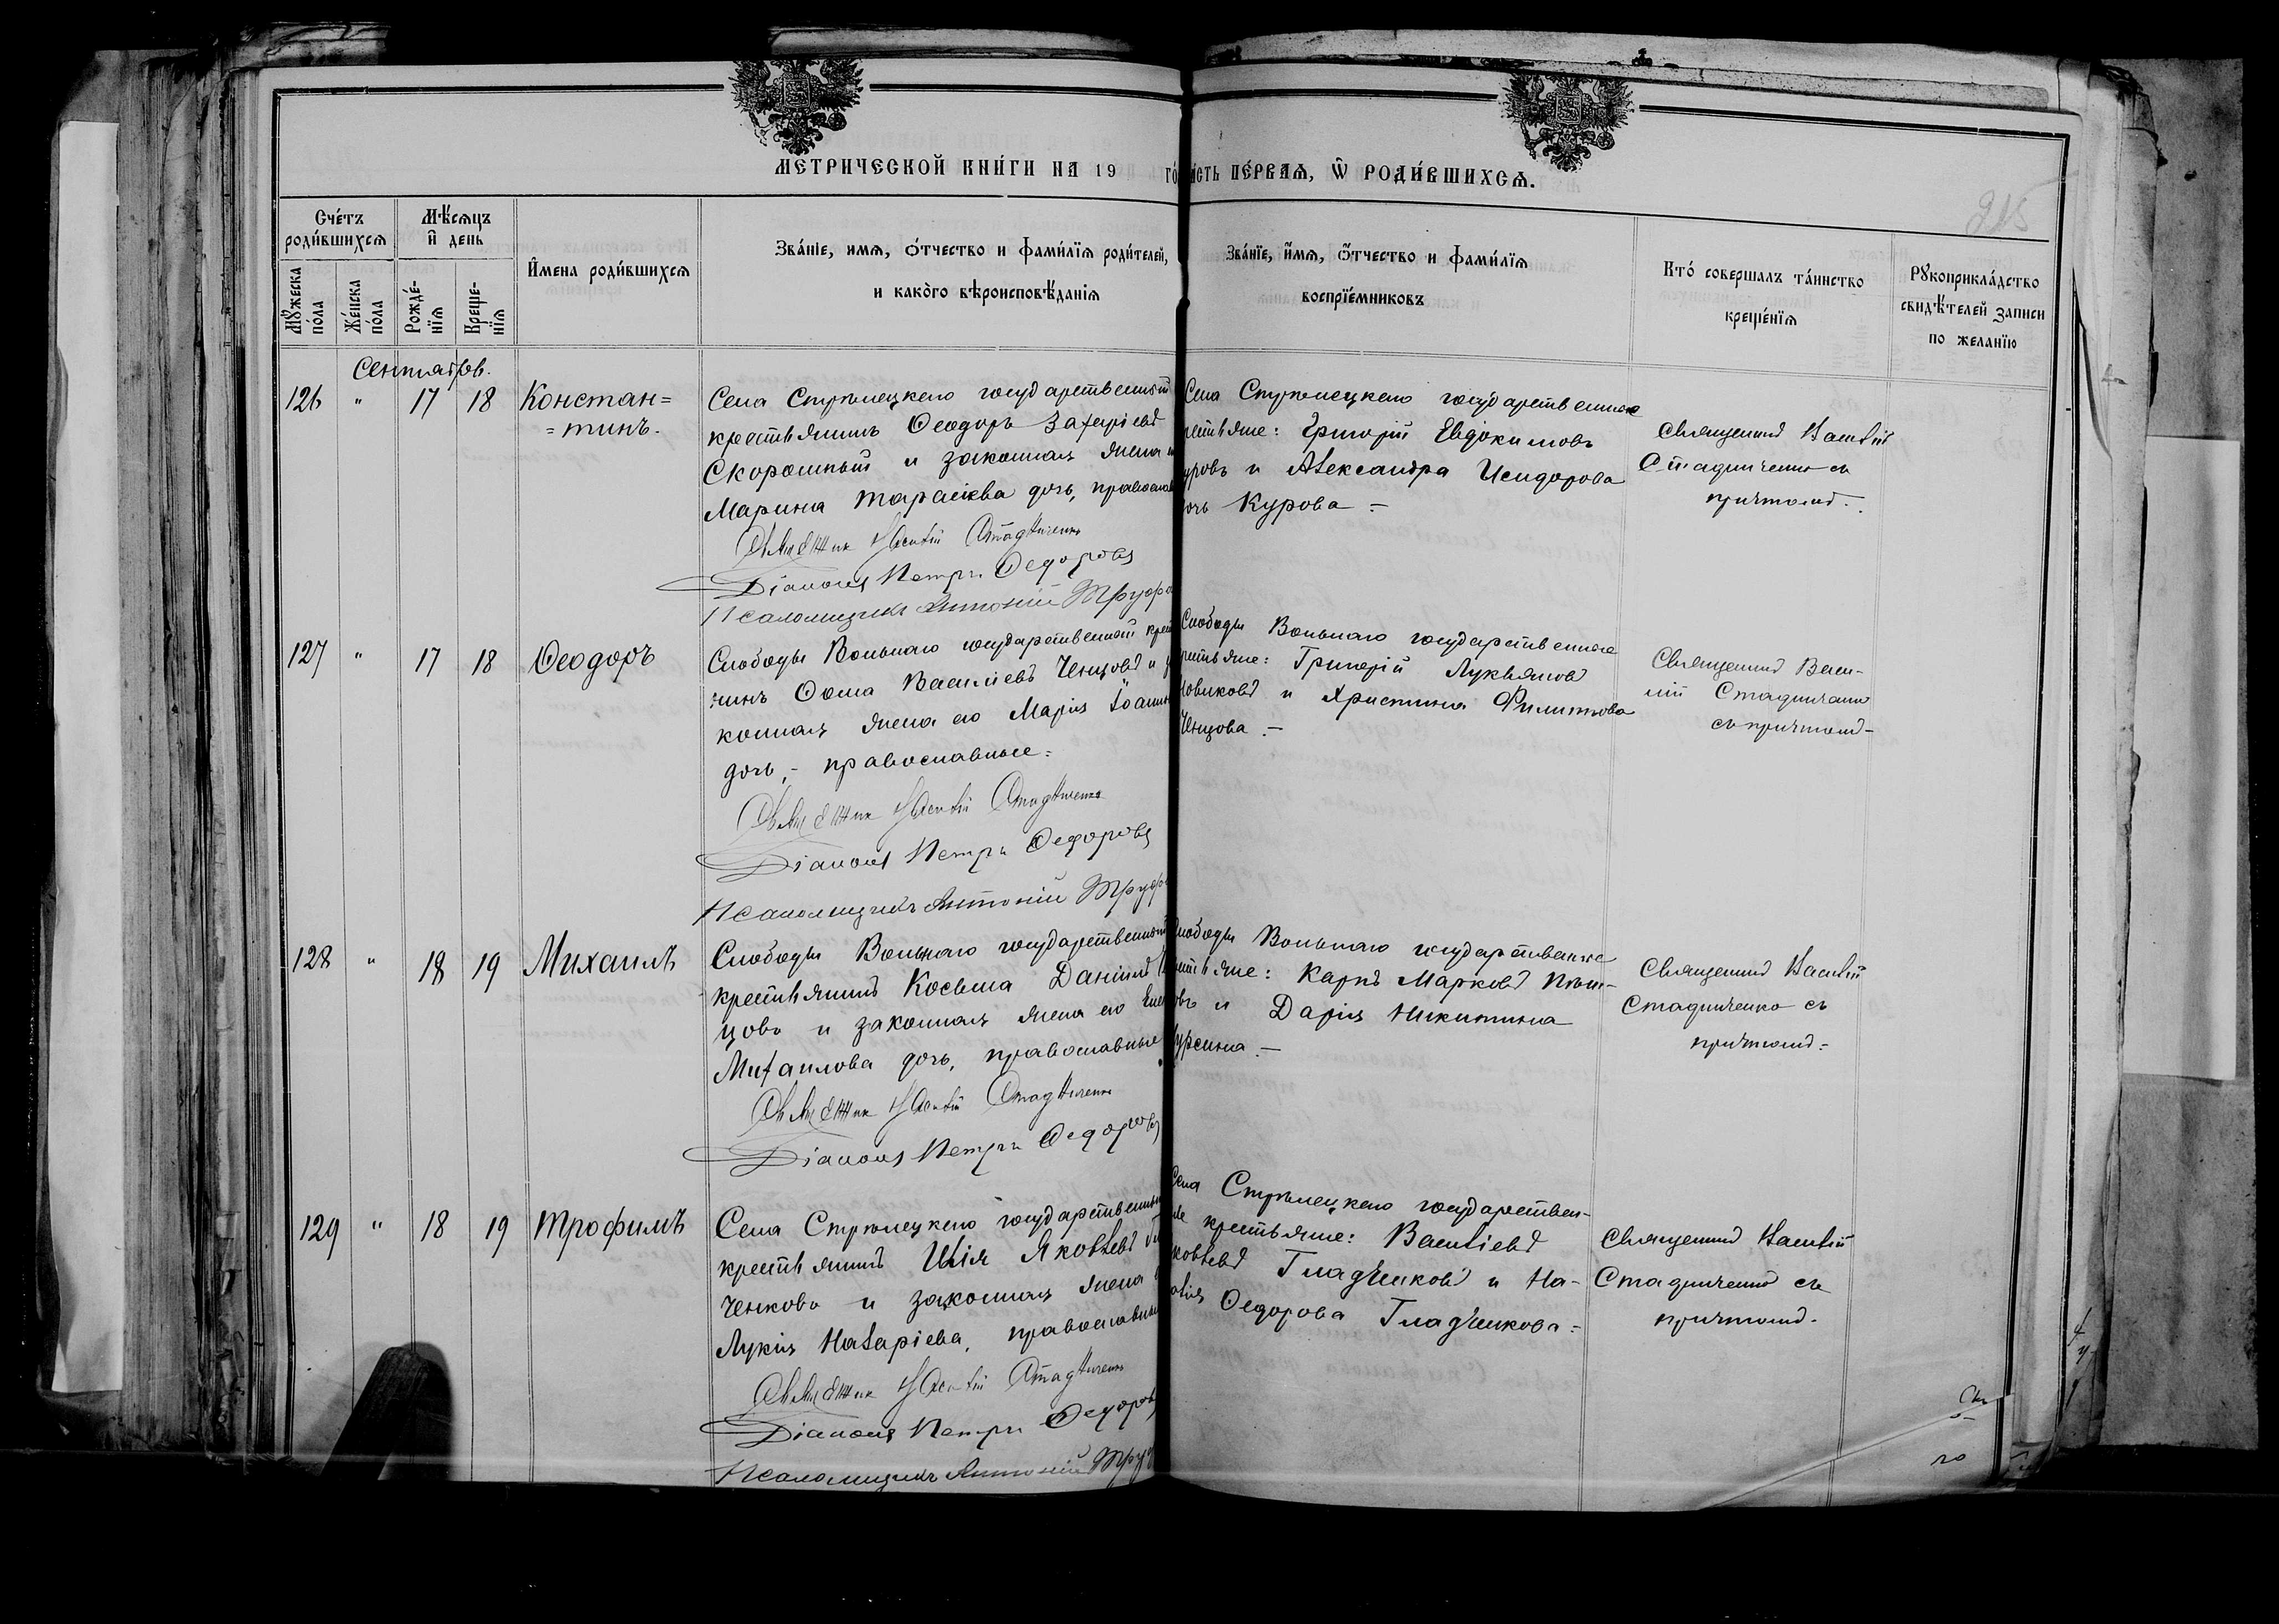 МЕТРИЧЕСКОЙ КНИ́ГИ НА 19 ГО
ИСТЬ ПЕ́РВАЯ, Ѿ РОДИ́ВШИХСЯ.
215
Сче́тъ
роди́вшихся
Мѣ́сяцъ
и҆ день
Мꙋжеска
по́ла
Же́нска
по́ла
Рожде́-
нїя
Креще-
нїя
И҆мена роди́вшихся
Зва́нїе, имя, ѻ҆́тчество и фами́лїя роди́телей,
и како́го вѣроисповѣ́данїя
Зва́нїе, и҆́мя, ѻ҆́тчество и фами́лїя
воспрїе́мниковъ
Кто́ совершалъ та́инство
креще́нїя
Рꙋкоприкла́дство
свидѣ́телей записи
по желанїю
Сентябрь.
126 " 17 18 Констан=
=тинъ.
Села Стрѣлецкаго государственный
крестьянинъ Ѳеодоръ Захаріевъ
Скорошный и законная жена
Марина Тарасіева дочь, православ
Священник Василій Стадниченко
Діаконъ Петръ Ѳедоровъ
Псаломщикъ Антоній Труфа
Села Стрѣлецкаго государственные
рестьяне: Григорій Евдокимовъ
уровъ и Александра Исидорова
очь Курова =
Священникъ Василій
Стадниченко съ
причтомъ.
127 " 17 18 Ѳеодоръ
Слободы Вольнаго государственный крест
нинъ Ѳома Василіевъ Ченцовъ и за
конная жена его Марія Іоанно
дочь, - православные.
Священник Василій Стадниченко
Діаконъ Петръ Ѳедоровъ
Псаломщикъ Антоній Труфа
Слободы Вольнаго государственные
рестьяне: Григорій Лукьянов
Новиковъ и Христина Филиппова
Ченцова. -
Священникъ Васи-
лій Стадниченко
съ причтомъ-
128 " 18 19 Михаилъ
Слободы Вольнаго государственный
крестьянинъ Косьма Даніил
цовъ и законная жена его Еле
Михаилова дочь, православные
Священник Василій Стадниченко
Діаконъ Петръ Ѳедоровъ
Слободы Вольнаго государственные
рестьяне: Карпъ Марковъ
овъ и Дарія Никитина
урсина. -
Священникъ Василій
Стадниченко съ
причтомъ =
129 " 18 19 Трофимъ
Села Стрѣлецкаго государственный
крестьянинъ Илія Яковлевъ
ченковъ и законная жена
Лукія Назаріева, православные
Священник Василій Стадниченко
Діаконъ Петръ Ѳедоровъ
Псаломщикъ Антоній Труф
Села Стрѣлецкаго государствен-
ые крестьяне: Василіевъ
ковлевъ Гладченковъ и На-
талія Ѳедорова Гладченкова =
Священникъ Василій
Стадниченко съ
причтомъ.